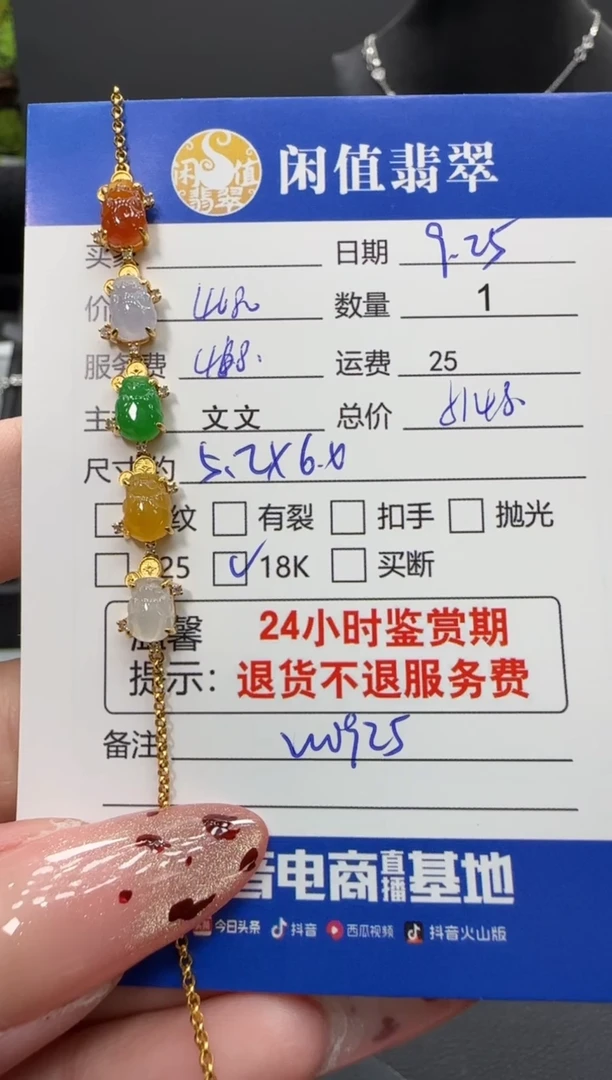 闲值翡翠
闲值翡翠
买 日期 9.25
价 数量 1
服务费 运费 25
主 文文 总价
尺寸 约 5.2X6.0
纹 有裂 扣手 抛光
25 18K 买断
馨 24小时鉴赏期
提示: 退货不退服务费
备注
音电商直播基地
今日头条 抖音 西瓜视频 抖音火山版